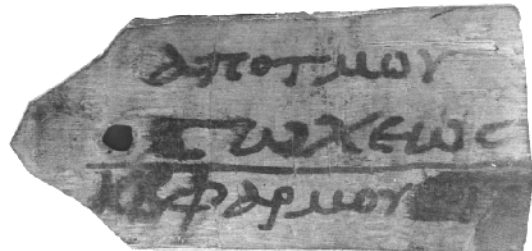 αποτμου
πωχεως
φαρμου